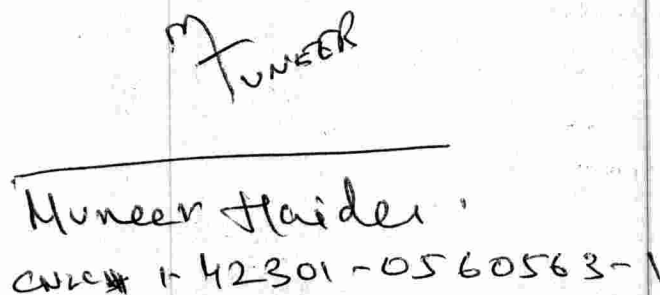 MUNEER
Muneer Haider.
CNIC# 1-42301-0560563-1